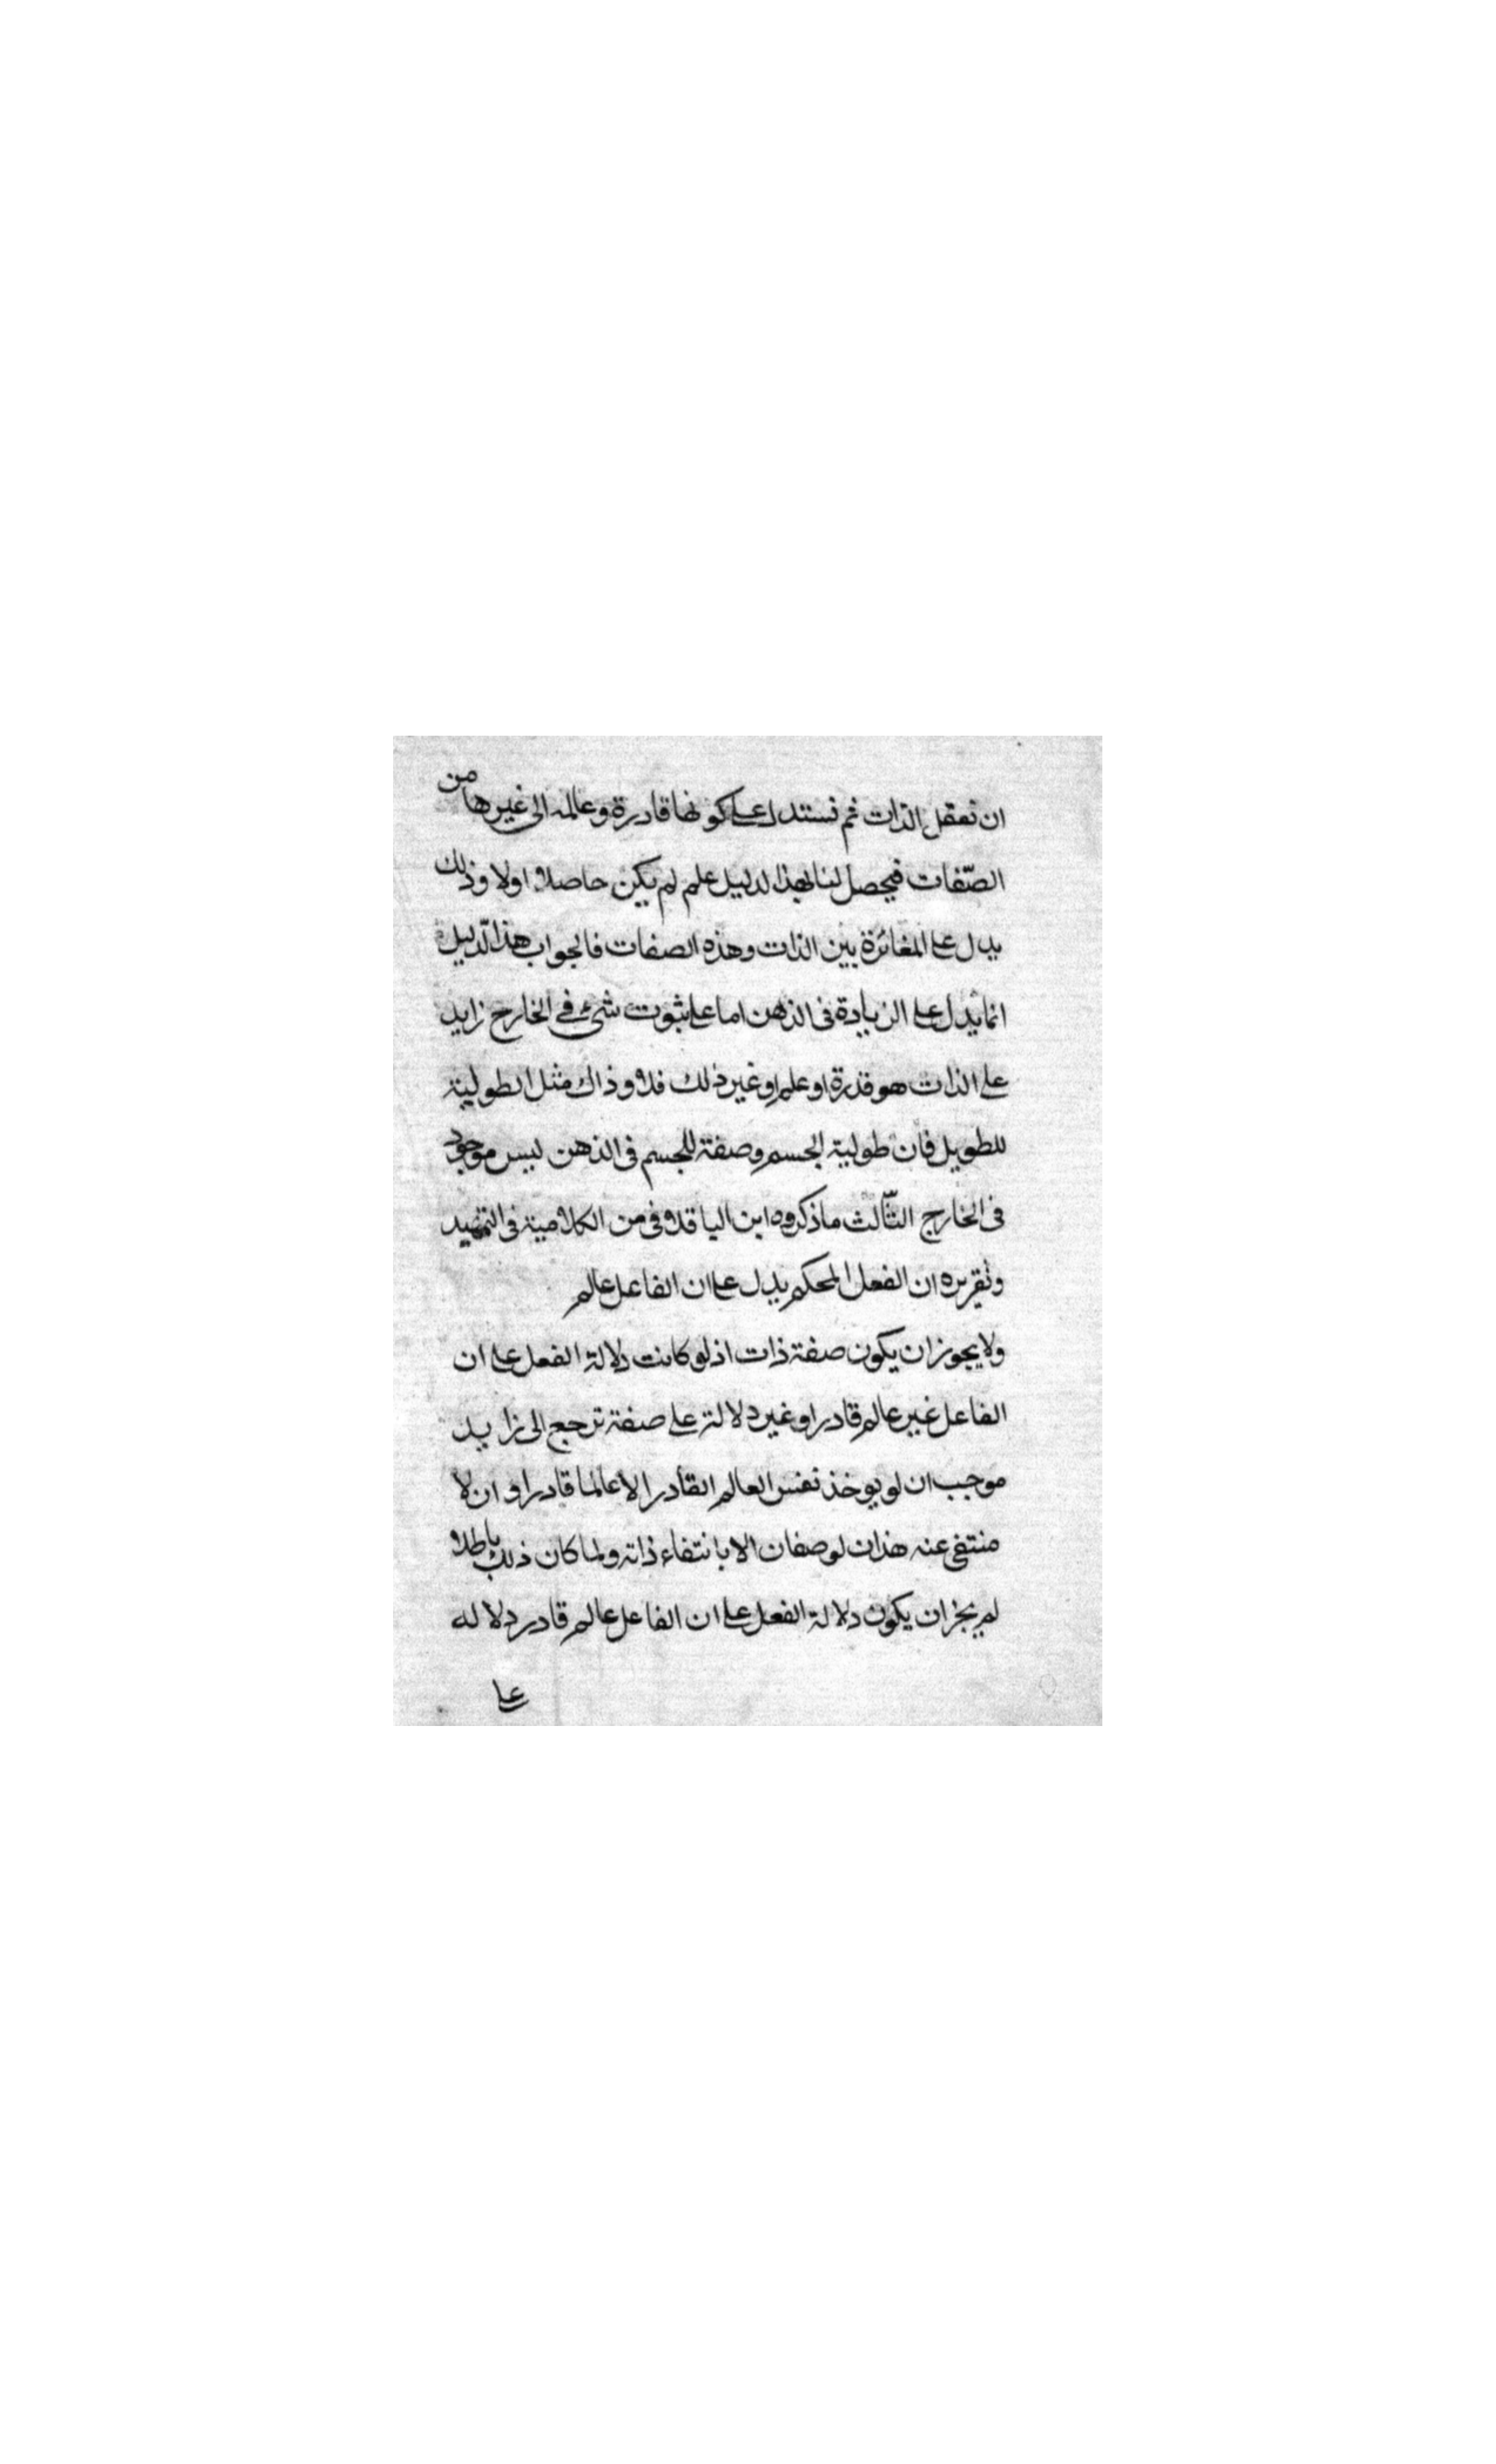 ان نعقل الذات ثم نستدل على كونها قادرة وعالمه الى غيرها من
الصّفات فيحصل لنا بهذا لدليل علم لم يكن حاصلا اولا وذلك
يدل على المغائرة بين الذات وهذه الصفات فالجواب هذا الّدليل
انما يدل على الزيادة فى الذهن اما على ثبوت شئ في الخارج زايد
على الذات هو قدرة او علم او غير ذلك فلا وذاك مثل الطولية
للطويل فان طولية الجسم وصفة للجسم فى الذهن ليس موجود
فى الخارج الثّالث ما ذكروه ابن الباقلا فى من الكلامية فى التمهيد
وتقريره ان الفعل المحكم يدل على ان الفاعل عالم
ولا يجوز ان يكون صفة ذات اذ لو كانت دلالة الفعل على ان
الفاعل غير عالم قادر او غير دلالة على صفة ترجع الى زايد
موجب ان لو يوخذ نفس العالم القادر الا عالما قادرا و ان لا
منتفى عنه هذان لوصفان الا بانتفاء ذاته ولما كان ذلك باطلا
لم يجز ان يكون دلالة الفعل على ان الفاعل عالم قادر دلاله
على